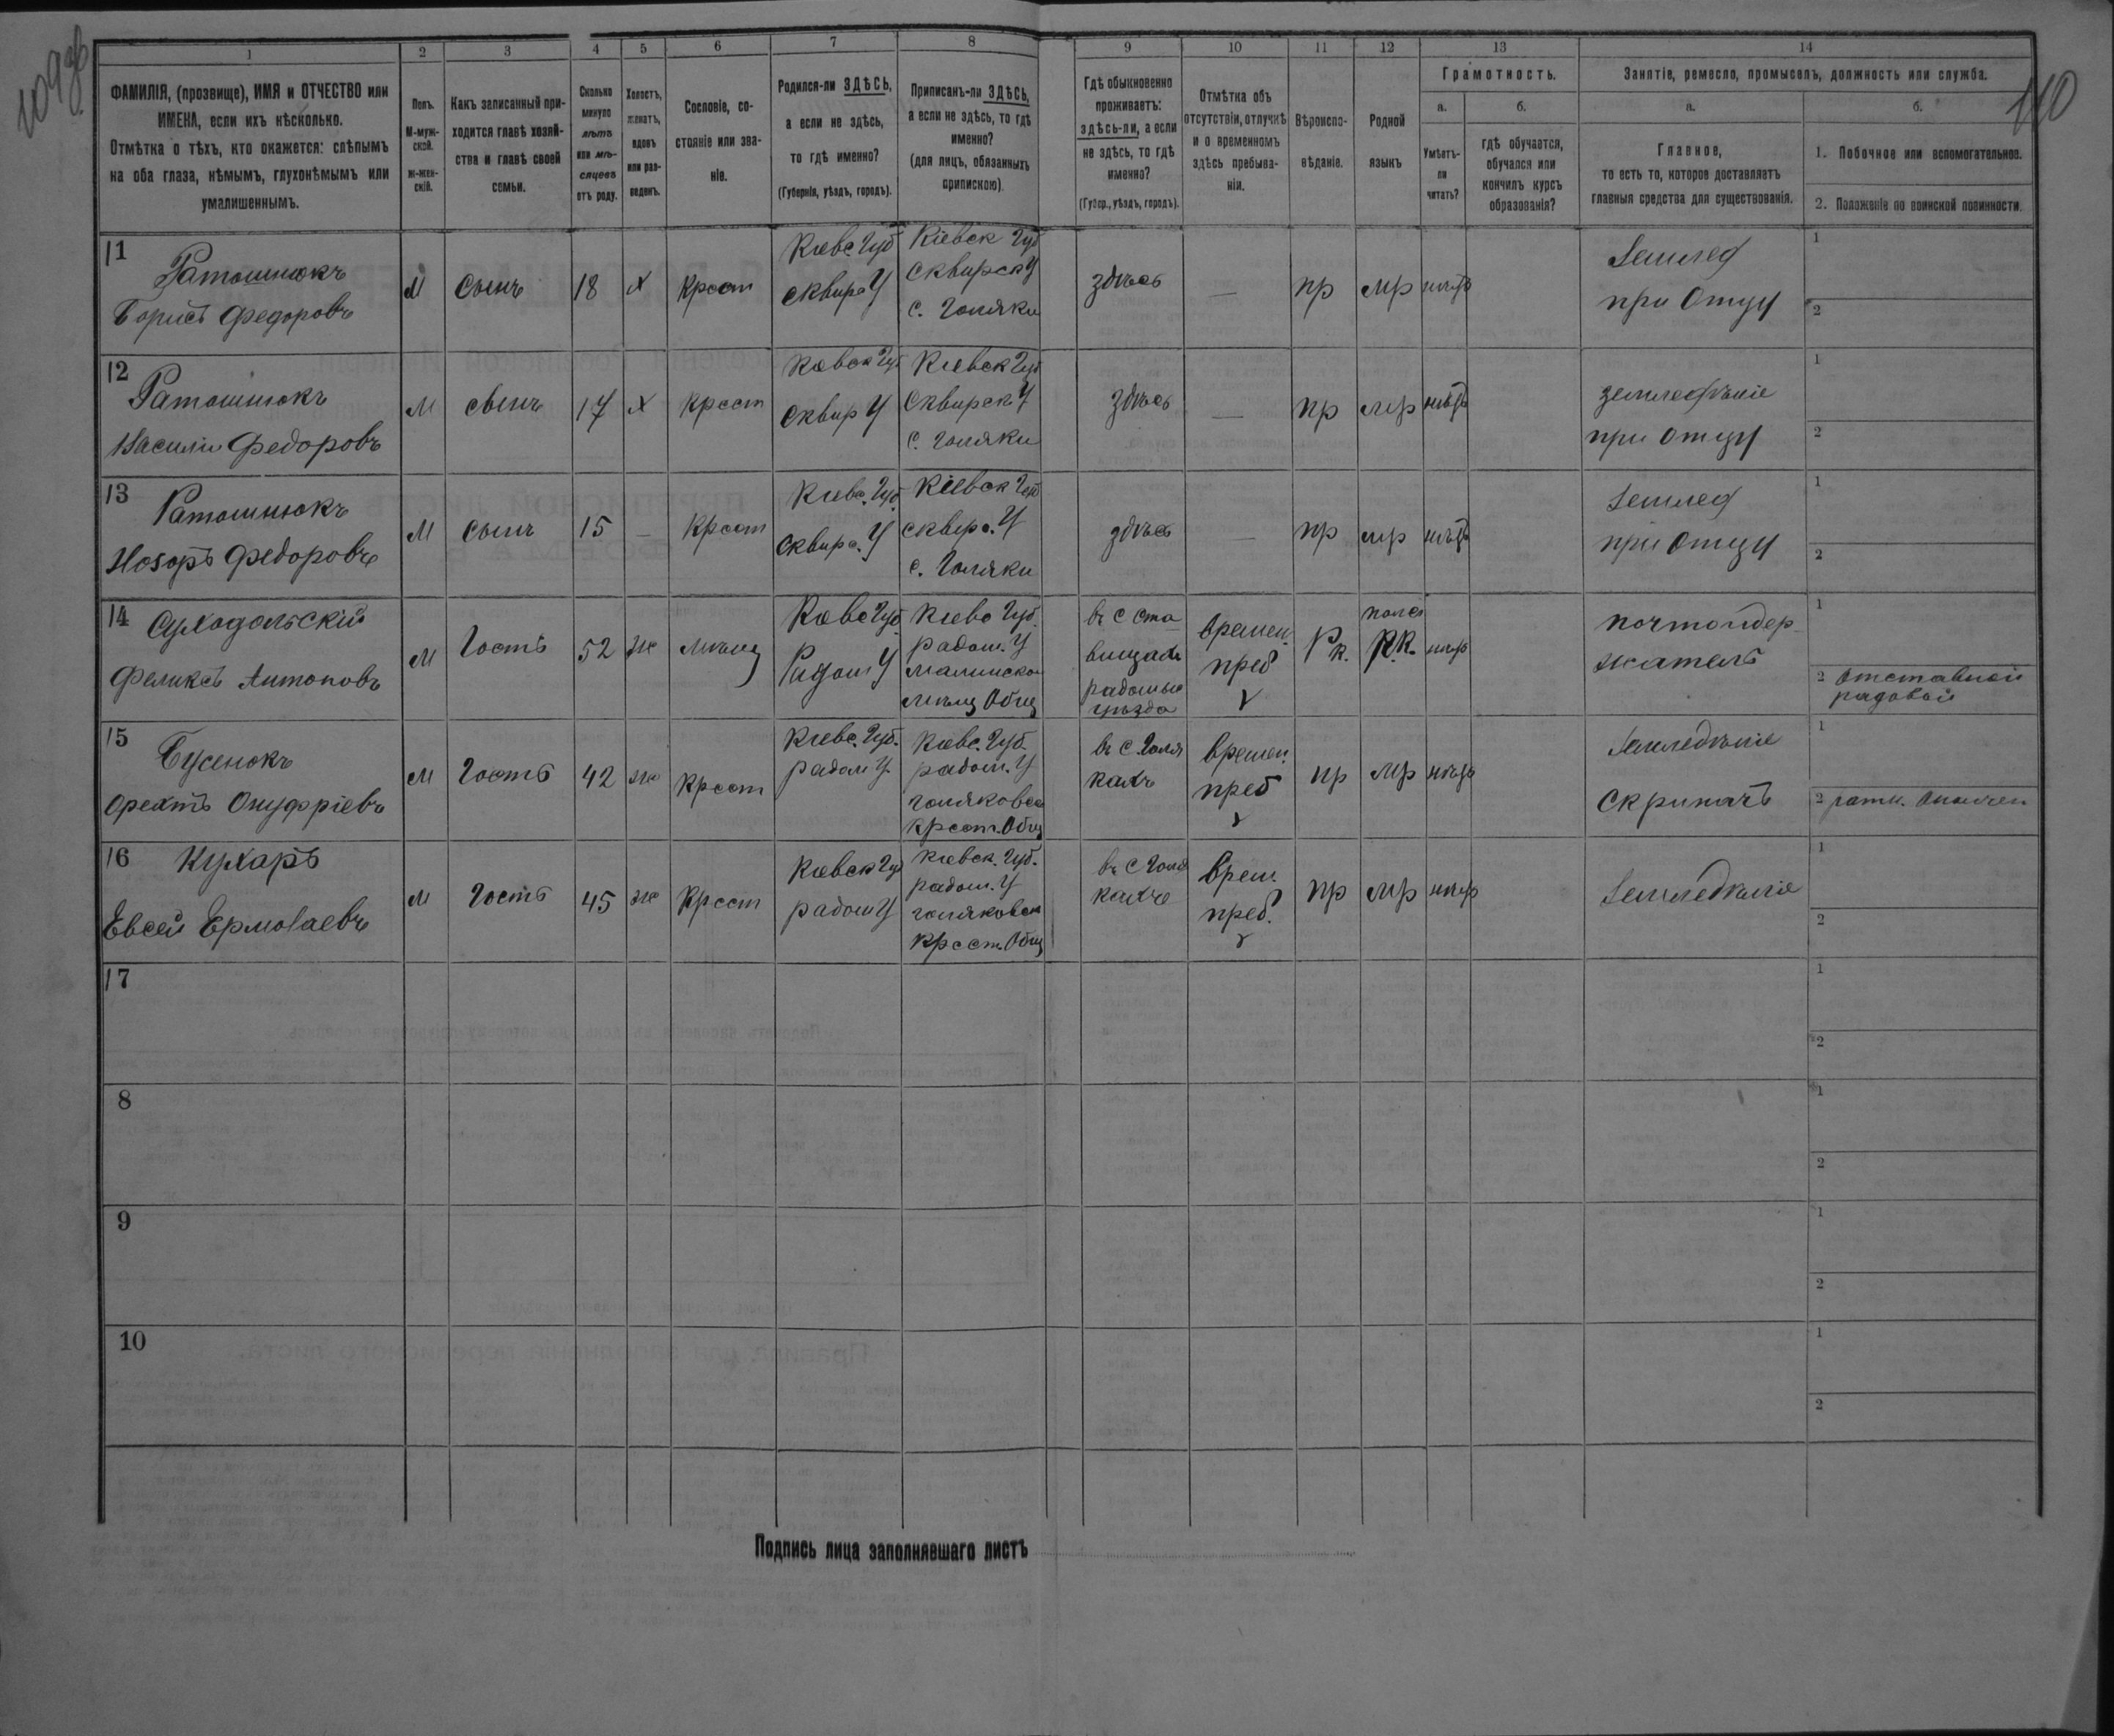 109об
110
1
2
3
4
5
6
7
8
9
10
11
12
13
14
ФАМИЛІЯ, (прозвище), ИМЯ и ОТЧЕСТВО или
ИМЕНА, если ихъ нѣсколько.
Отмѣтка о тѣхъ, кто окажется: слѣпымъ
на оба глаза, нѣмымъ, глухонѣмымъ или
умалишеннымъ.
Полъ.
М-муж-
ской.
Ж-жен-
скій.
Какъ записанный при-
ходится главѣ хозяй-
ства и главѣ своей
семьи.
Сколько
минуло
лѣтъ
или мѣ-
сяцевъ
отъ роду.
Холостъ,
женатъ,
вдовъ
или раз-
веденъ.
Сословіе, со-
стояніе или зва-
ніе.
Родился-ли ЗДѢСЬ,
а если не здѣсь,
то гдѣ именно?
(Губернія, уѣздъ, городъ).
Приписанъ-ли ЗДѢСЬ,
а если не здѣсь, то гдѣ
именно?
(для лицъ, обязанныхъ
припискою).
Гдѣ обыкновенно
проживаетъ:
здѣсь-ли, а если
не здѣсь, то гдѣ
именно?
(Губер., уѣздъ, городъ).
Отмѣтка объ
отсутствіи, отлучкѣ
и о временномъ
здѣсь пребыва-
ніи.
Вѣроиспо-
вѣданіе.
Родной
языкъ
Грамотность.
а.
Умѣетъ-
ли
читать?
б.
гдѣ обучается,
обучался или
кончилъ курсъ
образованія?
Занятіе, ремесло, промыселъ, должность или служба.
а.
Главное,
то есть то, которое доставляетъ
главныя средства для существованія.
б.
1. Побочное или вспомогательное.
2. Положеніе по воинской повинности.
11
Ратошнюкъ
Борисъ Федоровъ
М
сынъ
18
х
крест
Киевс Губ
сквирс У
Кіевск Губ
Сквирск У
с. Голяки
здѣсь
—
пр
мр
нѣтъ
Землед
при Отцу
1
2
12
Ратошнюкъ
Василий Федоровъ
М
сынъ
17
х
крест
Киевск Губ
сквир У
Киевск Губ
Сквирск У
с. Голяки
Здѣсь
—
пр
мр
нѣтъ
земледѣліе
при отцу
1
2
13
Ратошнюкъ
Федоровъ
М
сынъ
15
—
крест
Киевс. Губ.
Сквирс. У
Кіевск Губ
сквирс. У
с. Голяки
здѣсь
—
пр
мр
нѣтъ
Землед
при Отцу
1
2
14
Суходольскій
Феликсъ Антоновъ
М
Гость
52
же
мѣщ
Киевс Губ.
Радом У
Киевс Губ.
радом. У
малинско
мѣщ Общ
въ с Ста
вищахъ
уѣзда
времен.
преб
Р. К.
польс
Р. К.
нѣтъ
почтодер-
жатель
1
2 отставной
рядовой
15
Бусенокъ
Орехтъ Онуфріевъ
М
Гость
42
же
крест
Киевс. Губ.
радом У
Киевс. Губ.
радом. У
голяковск
крест. Общ
въ с. Голя
кахъ
времен.
преб
пр
мр
нѣтъ
Земледѣліе
Скрипачъ
1
2 ратн. Ополчен
16
Кухарь
Евсей Ермолаевъ
М
Гость
45
же
крест
Киевск Губ
радом У
Киевск. Губ.
радом. У
голяковск
крест. Общ
въ с Голя
кахъ
врем.
преб.
пр
мр
нѣтъ
Земледѣліе
1
2
17
1
2
8
1
2
9
1
2
10
1
2
Подпись лица заполнявшаго листъ